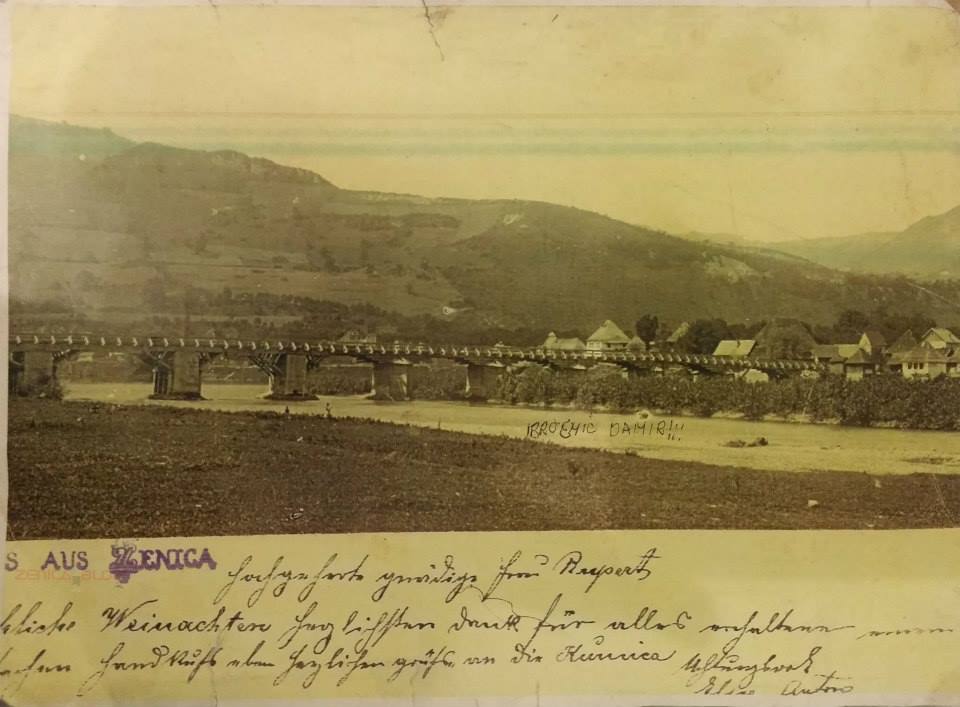 IBROEHIC DAMIR!!!
S AUS ZENICA
ZENICA BLOG
Hochgeherte gnädige Frau Rupert
hliche Weinachten herzlichsten dank für alles erhaltene einen
chen Handkuss eben herzlichen grüss an die
Achtungsvoll